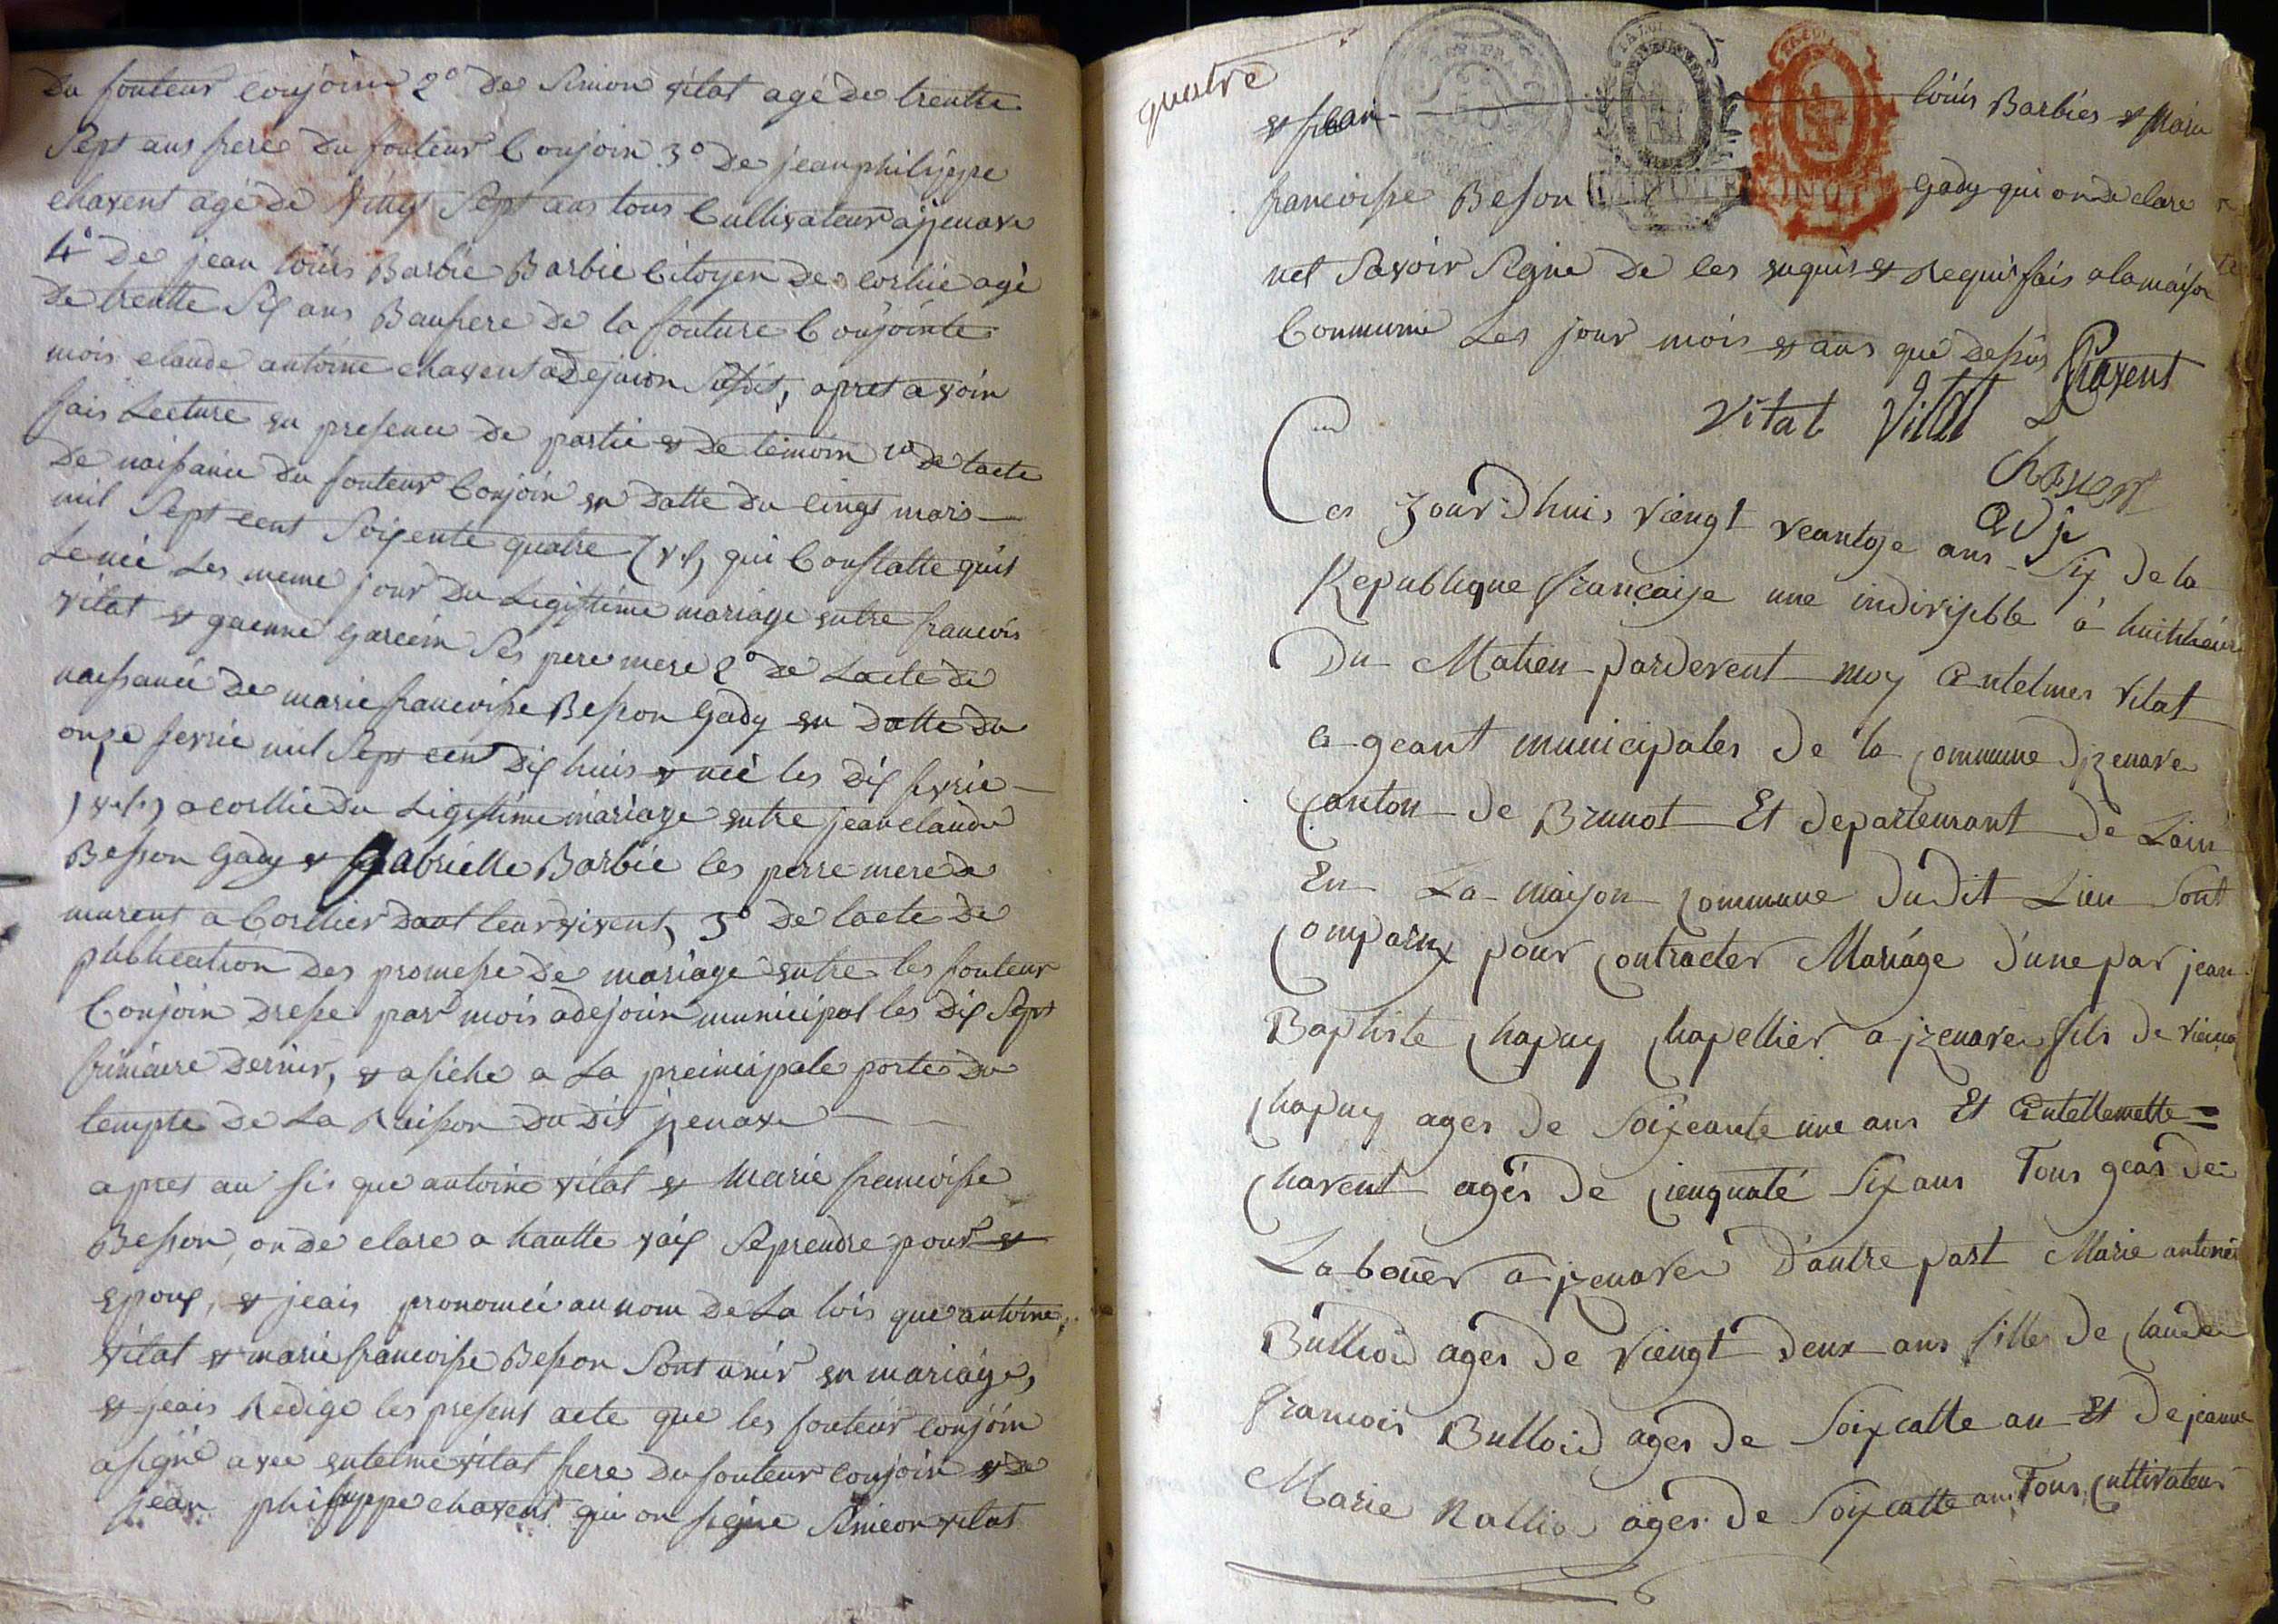 du fouteur conjoins 2° de Simon vitat agé de trentte
Sept ans frere du fouteur Conjoin 3° de jean philippe
chavent agé de vingt Sept ans tous Cullivateur a jzenave
4° de jean loüis Barbie Barbie Citoyen de corlié agé
de trentte Six ans Baufrere de la fouture Conjointe
mois claude antoine chavent adejoion Susdit, apres avoin
fais Lecture en presence de partie et de temoin 1° de lacte
de naissance du fouteur Conjoin en datte du cinqt mars
mil Sept cent Soixente quatre (v.s) qui Constatte quit
Le née Les meme jour du Legistime mariage entre francois
vitat et garcein Ses pere mere 2° de Lacte de
naissance de marie francoisse Besson Gady en datte du
onze fevrie mil Sept cent dix huis et née les dix fevrie
(v.s.) a corllié du Legistime mariage entre jean claude
Besson Gady et Gabrielle Barbie les perre mere de
murent a Corllier daut leur vivent, 3° de lacte de
publication des promesse de mariage entre les fouteur
Conjoin dresse par mois adejoin municipal les dix Sept
frimaire dernier, et afiche a La preincipale porte du
temple de La Raisson du dit jzenave
apres au sis que antoine vitat et marie francoisse
Besson, on de clare a hautte vaix Seprendre pour et
epoux, et jeais pronomcée au nom de La lois que antoine
vitat et marie francoisse Besson Sont unir en mariage,
et jeais Redige les present acte que les fouteur conjoin
asigné avec entelme vitat frere du fouteur conjoin et de
jean philippe chavent qui on signe Simeon vitat
quatre
et jean loüis Barbier et Marie
francoisse Beson Gady qui on declare
net Savoir Signe de les enquis et Requis fais a la maison
Commune Les jour mois et ans que dessus Chavent
Vitat Vitat
Chavent
adj
Ces Jour dhuis viengt veantose ans Six de la
Republique française une indivisible à huithheure
Du Matien pardevent moy Antelmes vitat
a geant municipales de la commune dizenave
Canton de Brunot Et departemant de Lain
En La maison commune dudit Lieu Sont
Comparux pour Contracter Mariage d'une par jean
Baptiste Chapuy Chapellier a jzenave fils de
Chapuy ages de Soixeante une ans Et Antellemette =
Chavent agés de Cienquaté Six ans Tous geas de
Labouer a jzenave D'autre part Marie antoine
Bulliod ages de viengt deux ans fille de Claude
francois Bulloid ages de Soixcatte an Et de jeanne
Marie Rallie ages de Soixcatte ans Tous Cultivateur